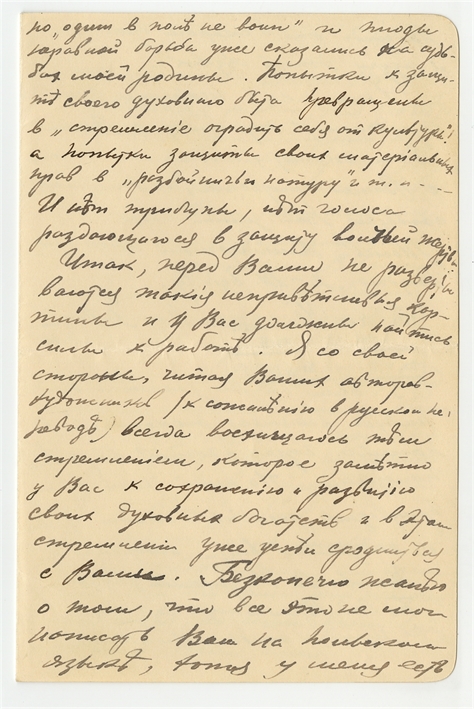 но „один в полѣ не воин" и плоды
неравной борьбы уже сказались на судь-
бах моей родины. Попытки к защи-
тѣ своего духовного быта превращены
в „стремленіе оградить себя от культуры"!
а попытки защиты своих матеріальных
прав в „разбойничью натуру" и т. п. - - -
И нѣт трибуны, нѣт голоса
раздающагося в защиту
Итак, перед Вами не развер-
ваются такія непривѣтливыя кар-
тины и у Вас должны найтись
силы к работѣ. Я со своей
стороны, читая Ваших авторов-
художников (к сожалѣнію в русском пе-
реводѣ) всегда восхищаюсь тѣм
стремленіем, которое замѣтно
у Вас к сохраненію и развитію
своих духовных богатств и в этом
стремленіи уже успѣл сродниться
с Вами. Безконечно жалѣю
о том, что все это не мог
написать Вам на польском
языкѣ, хотя у меня есть